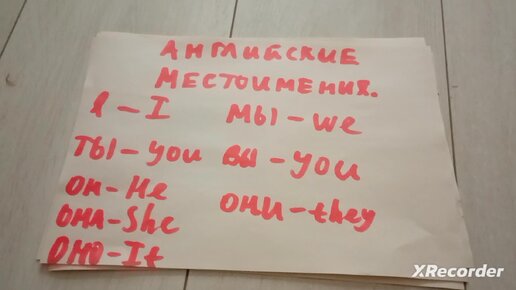 АНГЛИЙСКИЕ
МЕСТОИМЕНИЯ.
Я – I
МЫ – we
ТЫ – you
ВЫ – you
ОН – He
ОНИ – they
ОНА – She
ОНО – It
XRecorder